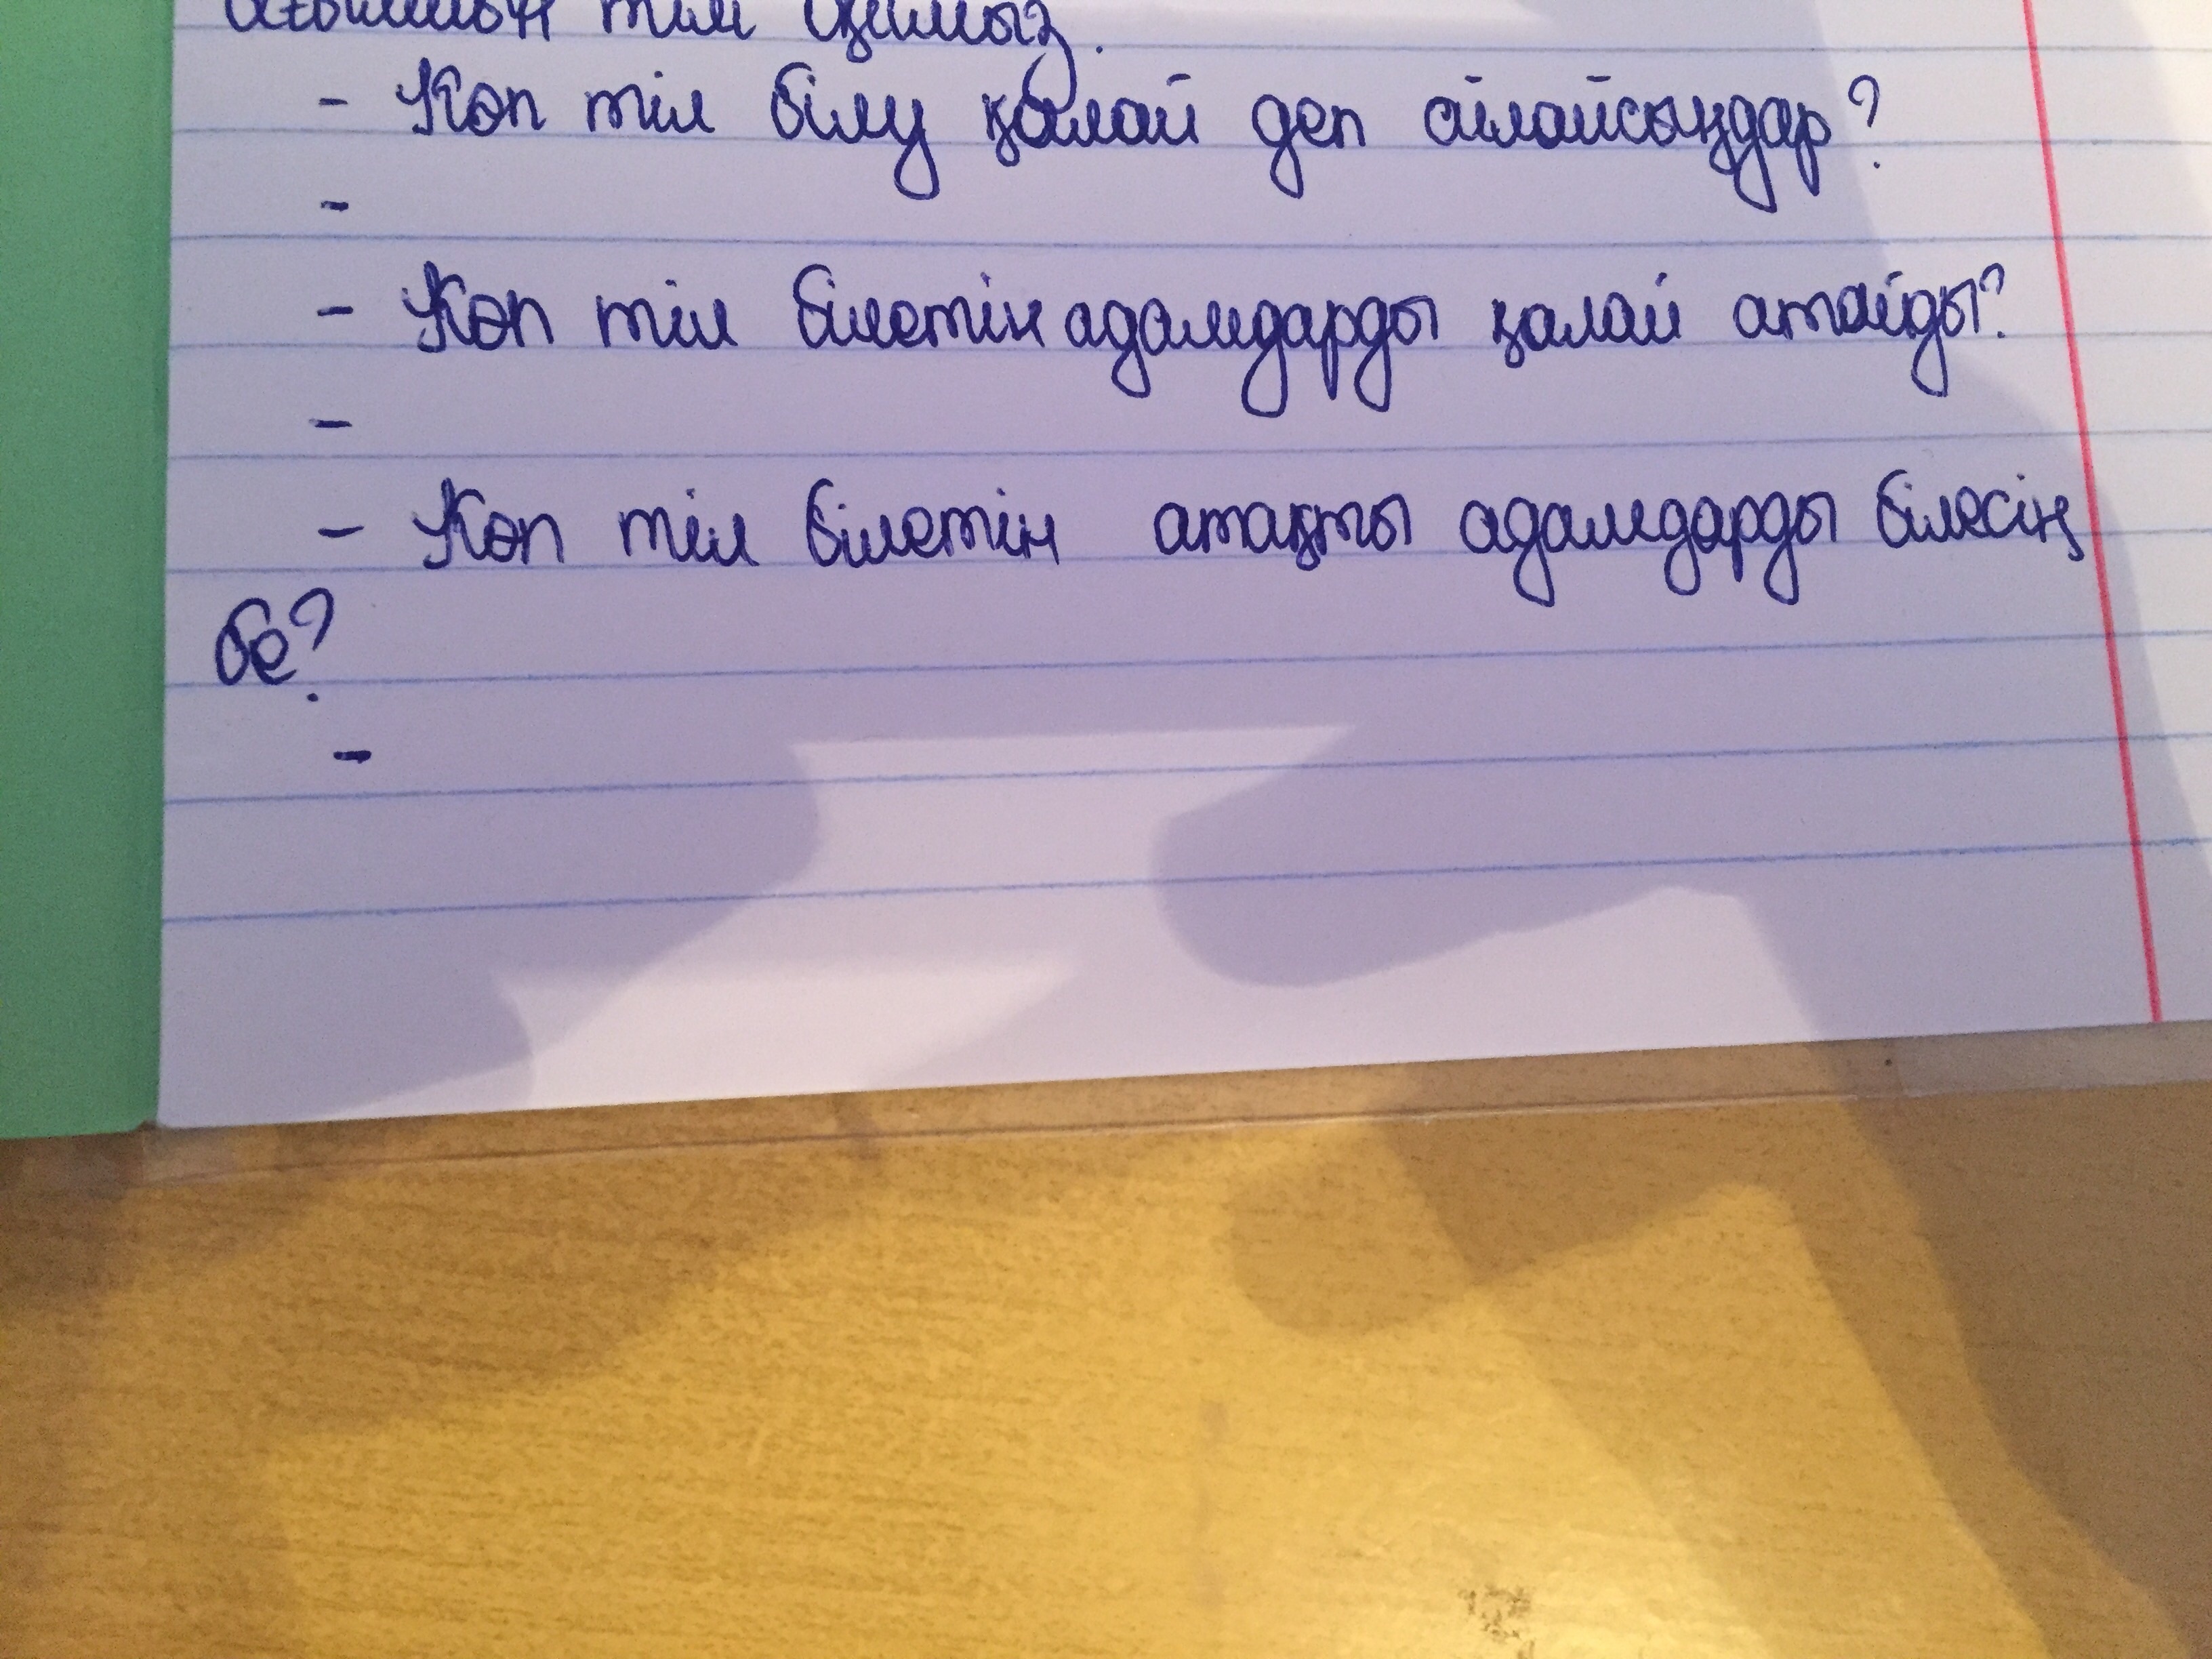 тіл
- Көп тіл білу қалай деп ойлайсыңдар?
-
- Көп тіл білетін адамдарды қалай атайды?
-
- Көп тіл білетін атақты адамдарды білесің
бе?
-